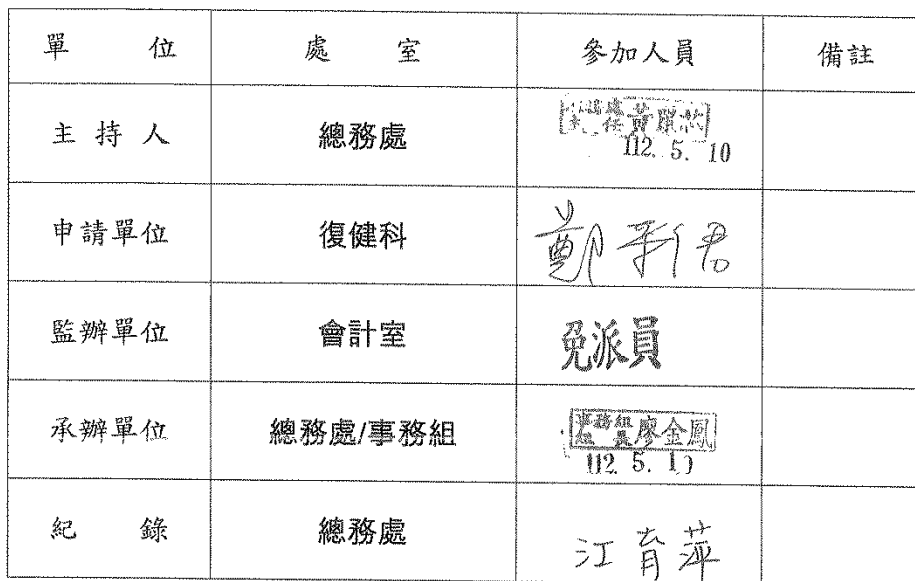 單 位 處 室 參加人員 備註
主 持 人 總務處 黃
112. 5. 10
申請單位 復健科 鄭
監辦單位 會計室 免派員
承辦單位 總務處/事務組 事務組組長廖金鳳
112. 5. 10
紀 錄 總務處 江育萍